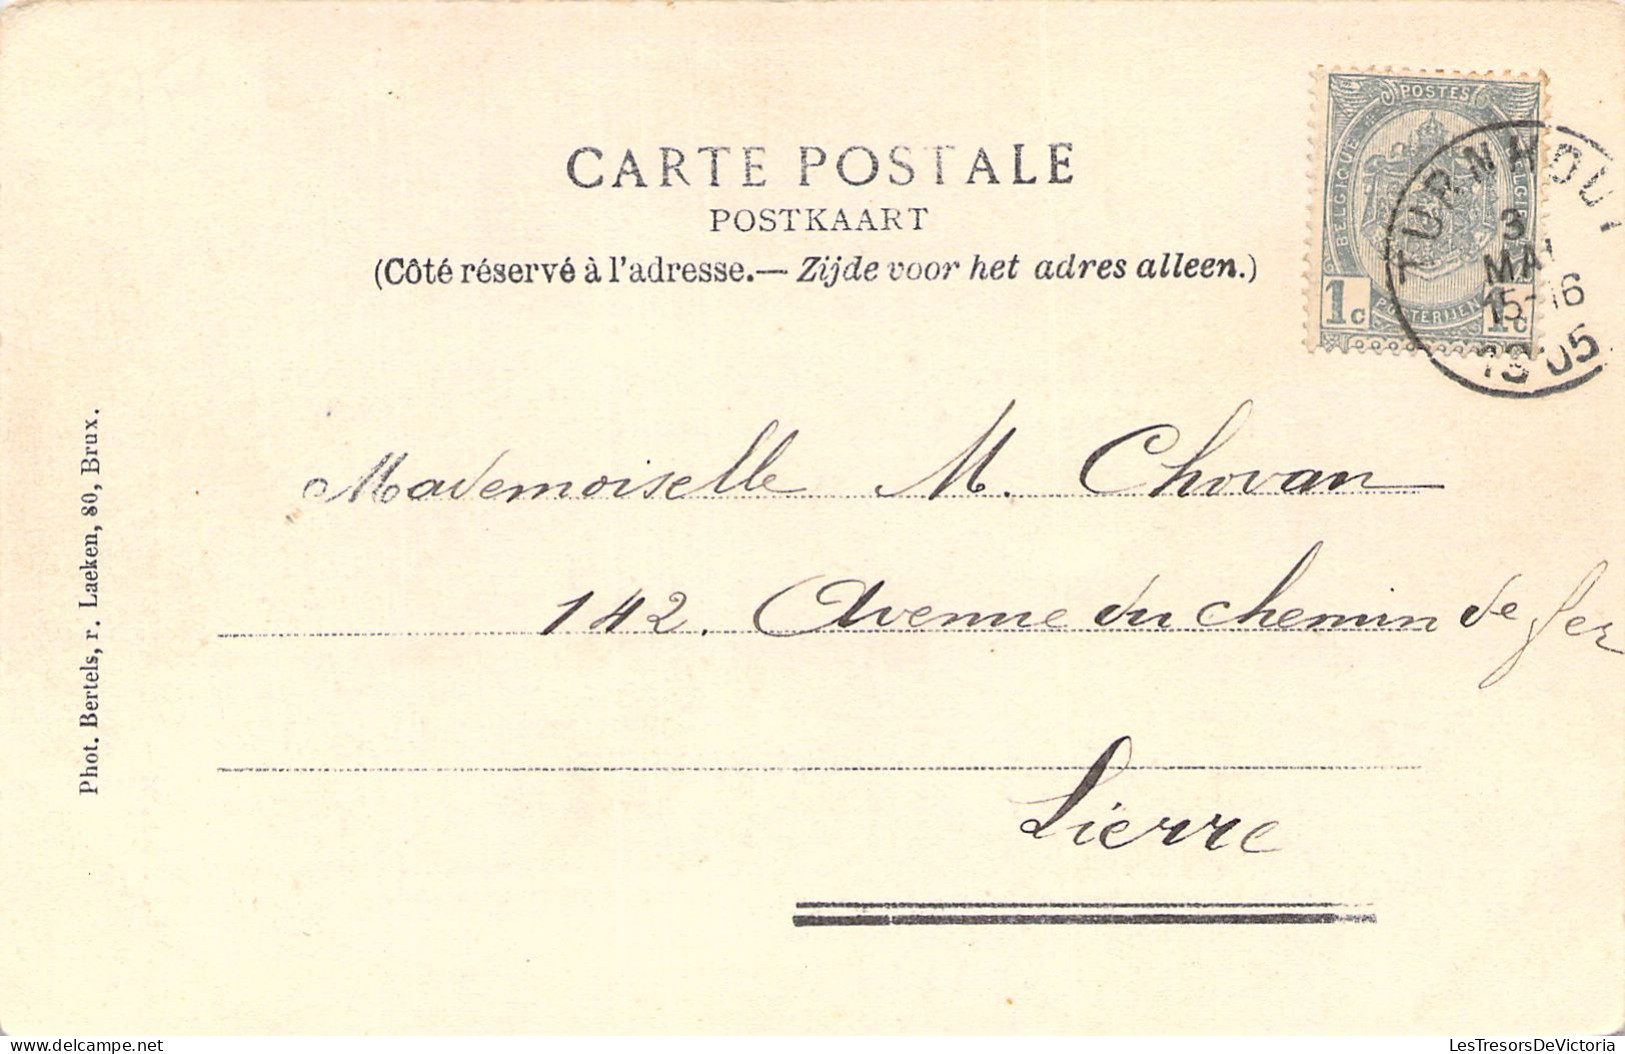 CARTE POSTALE
POSTKAART
(Côté réservé à l'adresse.— Zijde voor het adres alleen.)
POSTES
BELGIQUE
BELGIË
POSTERIJEN
1c 1c
TURNHOUT
3
MAI
15-16
1905
Mademoiselle M. Chovan
142. Avenue du chemin de fer
Lierre
Phot. Bertels, r. Laeken, 80, Brux.
LesTresorsDeVictoria